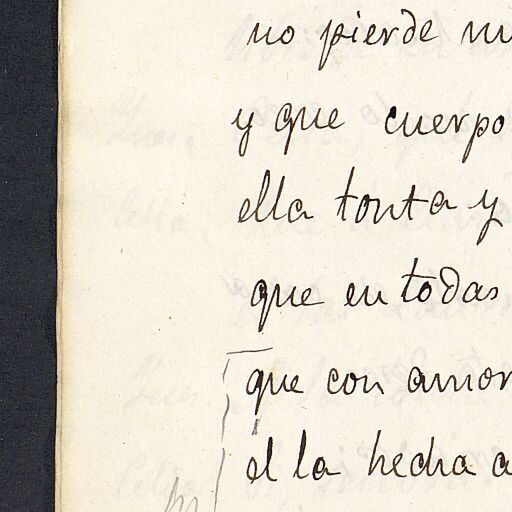 no pierde
y que cuerpo
ella tonta y
que en todas
que con amor
el la hecha a